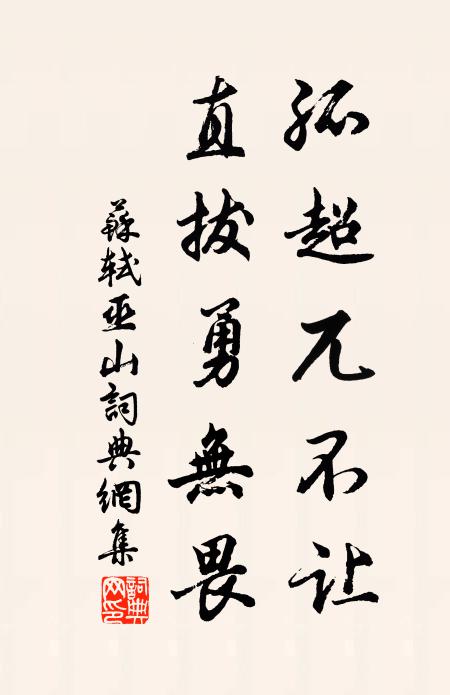 孤超兀不让
直拔勇無畏
蘇軾巫山詞典網集
詞典网印